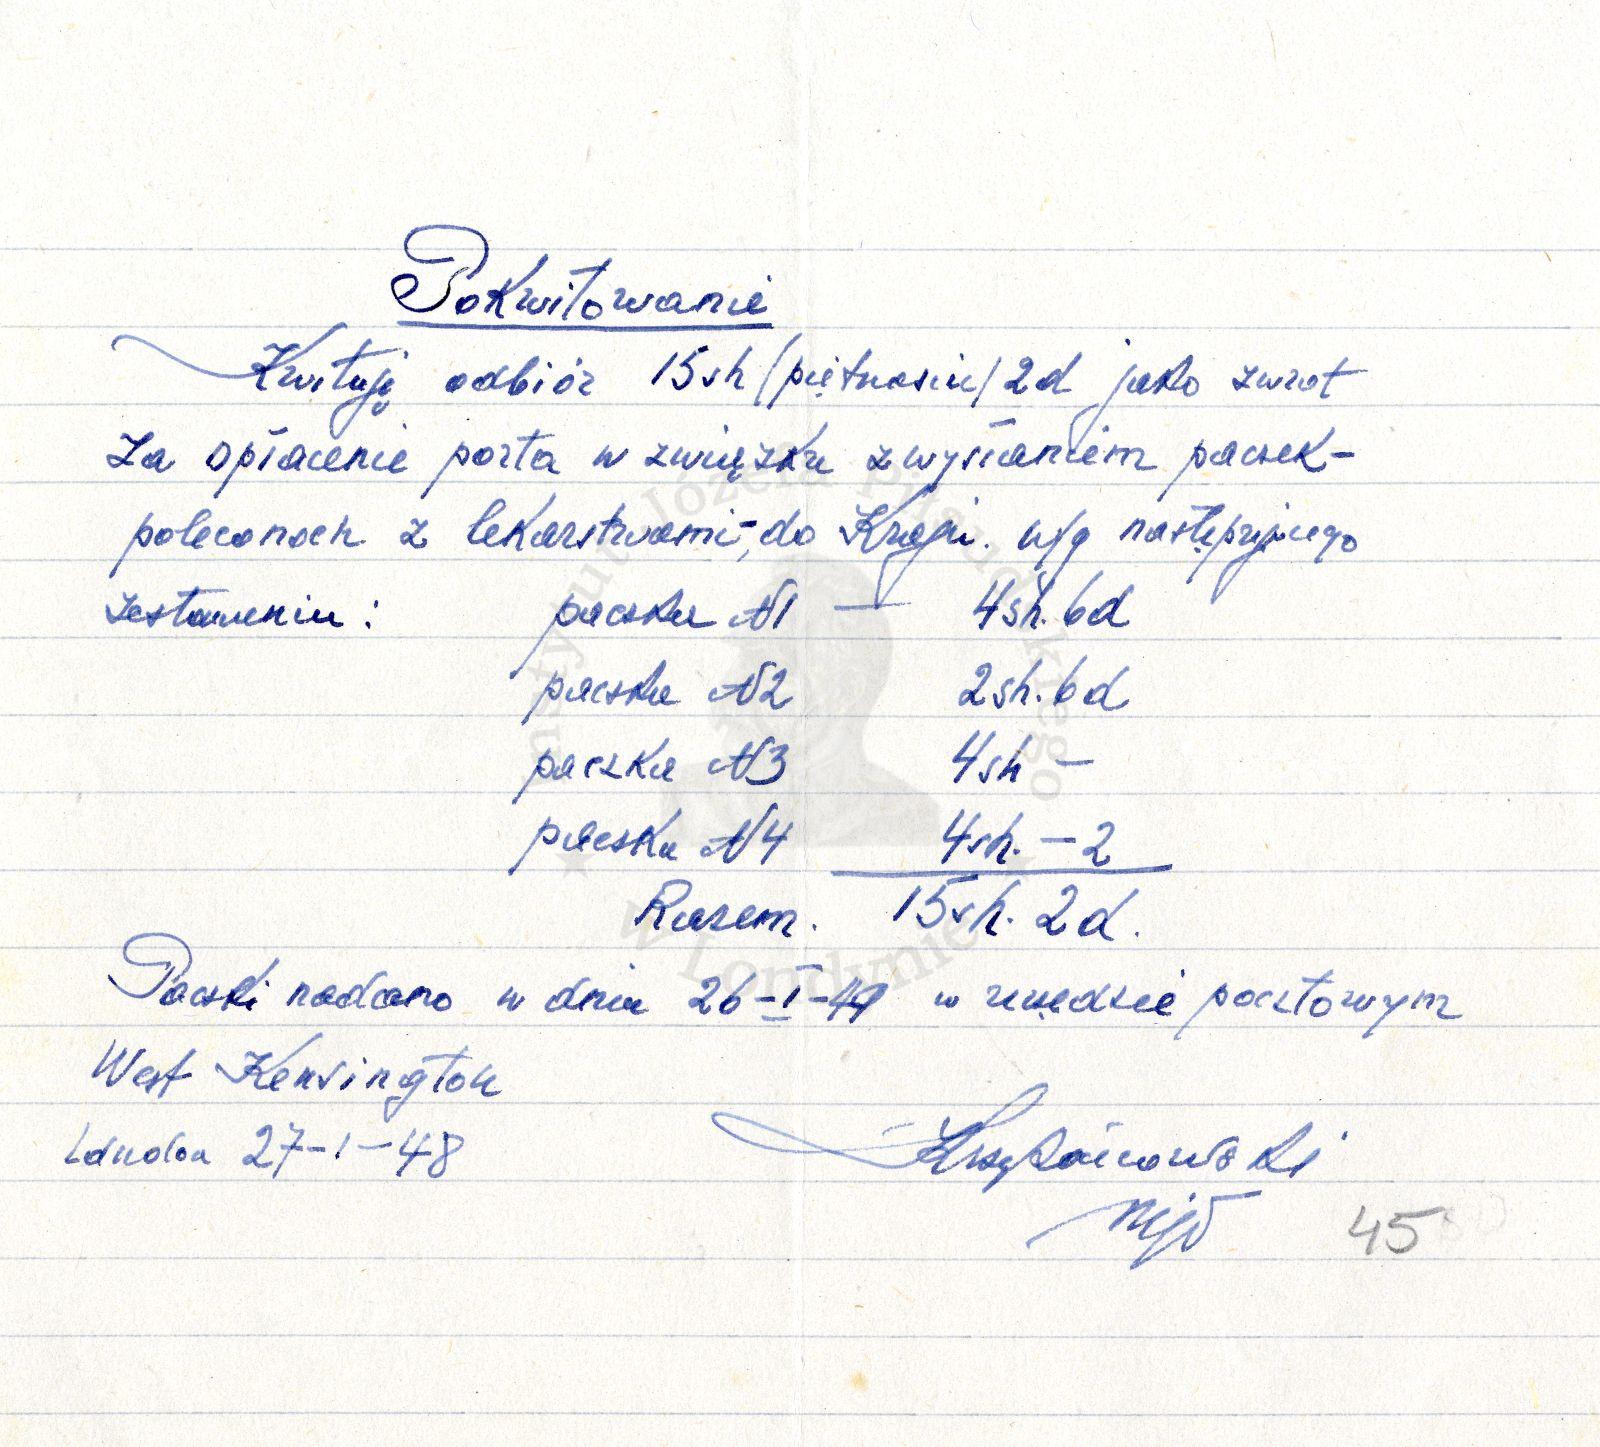 Pokwitowanie
Kwituję odbiór 15sh /piętnaście/ 2d jako zwrot
za opłacenie porta w związku z wysłaniem paczek-
poleconych z lekarstwami-, do Kraju. w/g następującego
zestawienia:   paczka N1 — 4sh. 6d
paczka N2   2sh. 6d
paczka N3   4sh —
paczka N4   4sh. — 2
Razem.   15sh. 2d.
Paczki nadano w dniu 26-I-49 w urzędzie pocztowym
West Kensington
London 27-1-48
mjr
45
Instytut Józefa Piłsudskiego
w Londynie